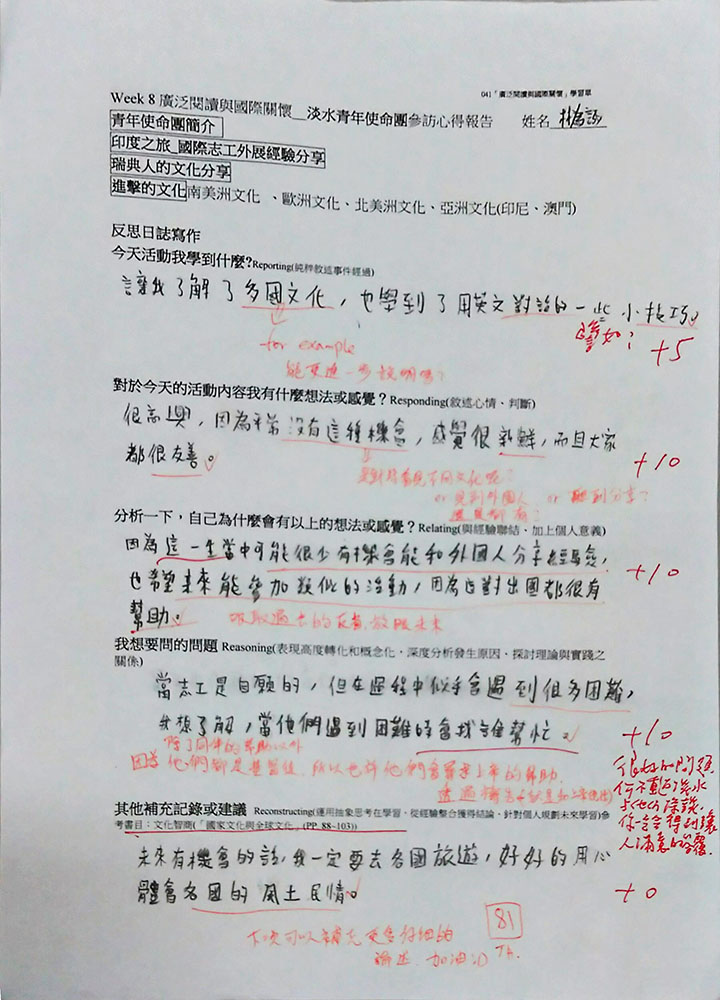 041「廣泛閱讀與國際關懷」學習單
Week 8 廣泛閱讀與國際關懷__淡水青年使命團參訪心得報告 姓名
青年使命團簡介
印度之旅_國際志工外展經驗分享
瑞典人的文化分享
進擊的文化南美洲文化 、歐洲文化、北美洲文化、亞洲文化(印尼、澳門)
反思日誌寫作
今天活動我學到什麼?Reporting(純粹敘述事件經過)
讓我了解了多國文化，也學到了用英文對話的一些小技巧。
譬如？
+5
for example
能更進一步說明嗎？
對於今天的活動內容我有什麼想法或感覺？Responding(敘述心情、判斷)
很高興，因為平常沒有這種機會，感覺很新鮮，而且大家
都很友善。
+10
是對於看見不同文化呢？
or 見到外國人 or 聽到分享？
還是都有？
分析一下，自己為什麼會有以上的想法或感覺？Relating(與經驗聯結、加上個人意義)
因為這一生當中可能很少有機會能和外國人分享經驗，
也希望未來能參加類似的活動，因為這對出國都很有
幫助。
+10
吸取過去的 放眼未來
我想要問的問題 Reasoning(表現高度轉化和概念化，深度分析發生原因，探討理論與實踐之
關係)
當志工是自願的，但在過程中似乎會遇到很多困難，
我想了解，當他們遇到困難時會找誰幫忙。
+10
除了同伴的幫助以外
因為他們都是基督徒，所以也許他們會尋求上帝的幫助
透過禱告
很好的問題
何不重返淡水
與他們談談，
你一定會得到讓
人滿意的答覆.
其他補充記錄或建議 Reconstructing(運用抽象思考在學習、從經驗整合獲得結論，針對個人規劃未來學習)參
考書目：文化智商(「國家文化與全球文化」(PP 88~103))
未來有機會的話，我一定要去各國旅遊，好好的用心
體會各國的風土民情。
+0
81
下次可以補充更多仔細的
論述 加油:D Th.